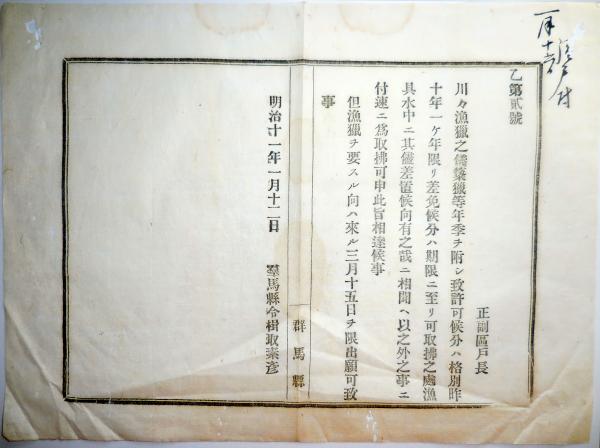 乙第貳號
正副區戶長
川々漁獵之儀簗獵等年季ヲ附シ致許可候分ハ格別昨
十年一ケ年限リ差免候分ハ期限ニ至リ可取拂之處漁
具水中ニ其儘差置候向有之哉ニ相聞ヘ以之外之事ニ
付速ニ爲取拂可申此旨相達候事
但漁獵ヲ要スル向ハ來ル三月十五日ヲ限出願可致
事
明治十一年一月十二日
羣馬縣令楫取素彥
群馬縣